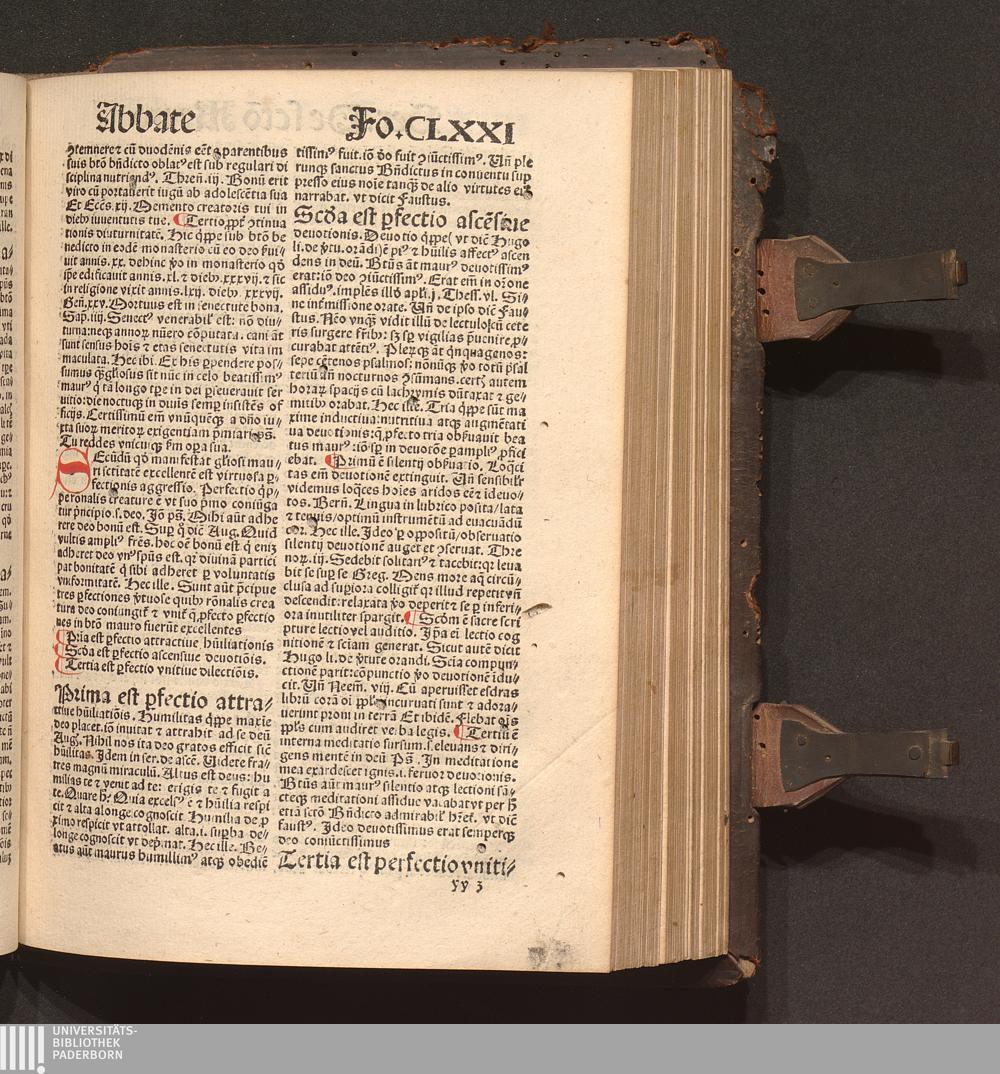 Abbate
Fo. CLXXI
ↄtemnere ⁊ cū duodēnis eēt a parentibus
suis btō bn̄dicto oblatꝰ est sub regulari di
sciplina nutriendꝰ. Thren̄. iij. Bonū erit
viro cū portauerit iugū ab adolescētia sua
Et Eccs̄. xij. Memento creatoris tui in
dieb iuuentutis tue. Tertio ꝓpt̄ ↄtinua
tionis diuturnitatē. Hic q̄ppe sub btō be
nedicto in eodē monasterio cū eo deo
uit annis. xx. dehinc ꝟo in monasterio qd̄
ipe edificauit annis. xl. ⁊ dieb. xxxvij. ⁊ sic
in religione vixit annis. lxij. dieb. xxxvij.
Gen̄. xxv. Mortuus est in senectute bona.
Sap. iiij. Senectꝰ venerabilꝭ est: nō diu-
turna: neqꝫ annoꝝ nūero cōputata. cani āt
sunt sensus hoīs ⁊ etas senectutis vita im
maculata. Hec ibi. Ex his ꝑpendere pos-
sumus q̄ gl̄iosus sit nūc in celo beatissimꝰ
maurꝰ q̄ tā longo tꝑe in dei ꝑseuerauit ser
uitio: die noctuqꝫ in diuīs semꝑ insistēs of
ficijs. Certissimū em̄ vnūquēqꝫ a dn̄o iu-
xta suoꝝ meritoꝝ exigentiam p̄miari. ps̄.
Tu reddes vnicuiqꝫ ẜm oꝑa sua.
SEcūdū qd̄ manifestat gl̄iosi mau-
ri sctitatē excellentē est virtuosa ꝑ-
fectionis aggressio. Perfectio
ꝑsonalis creature ē vt suo p̄mo coniūga
tur p̄ncipio. s. deo. Iō ps̄. Mihi aūt adhe
rere deo bonū est. Suꝑ q̄ dic̄ Aug. Quid
vultis ampliꝰ frēs. hoc oē bonū est q̄ enī
adheret deo vnꝰ spūs est. qꝛ diuinā partici
pat bonitatē q̄ sibi adheret ꝑ voluntatis
vniformitatē. Hec ille. Sunt aūt p̄cipue
tres ꝑfectiones ꝟtuose quib rōnalis crea
tura deo coniungit̄ ⁊ vnit̄ q̄ ꝓfecto ꝑfectio
nes in btō mauro fuerūt excellentes
Pria est ꝑfectio attractiue hūiliationis
Scd̄a est ꝑfectio ascensiue deuotiōis.
Tertia est ꝑfectio vnitiue dilectiōis.
Prima est ꝑfectio attra-
ctiue hūiliatiōis. Humilitas q̄ppe maxīe
deo placet. iō inuitat ⁊ attrahit ad se deū
Aug. Nihil nos ita deo gratos efficit sic̄
hūilitas. Idem in ser. de ascē. Videte fra-
tres magnū miraculū. Altus est deus: hu
milias te ⁊ venit ad te: erigis te ⁊ fugit a
te. Quare h̄? Quia excelsꝰ ē ⁊ hūilia respi
cit ⁊ alta a longe cognoscit. Humilia de ꝓ
ximo respicit vt attollat. alta. i. suꝑba de
longe cognoscit vt dep̄mat. Hec ille. Be-
atus aūt maurus humillimꝰ atqꝫ obediē
tissimꝰ fuit. iō deo fuit ↄiūctissimꝰ. Vn̄ ple
runqꝫ sanctus Bn̄dictus in conuentu suꝑ
presso eius noīe tanqꝫ de alio virtutes
narrabat. vt dicit Faustus.
Scd̄a est ꝑfectio ascēsiue
deuotionis. Deuotio q̄ppe (vt dic̄ Hugo
li. de ꝟtu. orādi) ē piꝰ ⁊ hūilis affectꝰ ascen
dens in deū. Btūs āt maurꝰ deuotissimꝰ
erat: iō deo ↄiūctissimꝰ. Erat em̄ in or̄one
assiduꝰ. implēs illd̄ apl̄i. j. Thess. vl. Si-
ne intmissione orate. Vn̄ de ipso dic̄ Fau-
stus. Neo vnqꝫ vidit illū de lectulo cete
ris surgere frībꝰ: sꝫ sꝑ vigilias p̄uenire
curabat attētiꝰ. Pleꝝqꝫ āt qnquagenos:
sepe cētenos psalmos: nonūqꝫ ꝟo totū psal
teriū an̄ nocturnos ↄsūmans. certꝫ autem
horaꝝ spacijs cū lachrymis dūtaxat ⁊ ge-
mitib orabat. Hec ille. Tria q̄ppe sūt ma
xime inductiua: nutritiua atqꝫ augmētati
ua deuotionis: q̄ ꝓfecto tria obẜuauit bea
tus maurꝰ: iō sꝑ in deuotōe ꝑampliꝰ ꝓfici
ebat. Primū ē silentij obẜuatio. Loq̄ci
tas em̄ deuotionē extinguit. Vn̄ sensibilꝭ
videmus loq̄ces hoīes aridos cēt ⁊ īdeuo-
tos. Bern̄. Lingua in lubrico posita/lata
⁊ tenuis/optimū instrumētū ad euacuādū
cor. Hec ille. Ideo ꝑ oppositū/obseruatio
silentij deuotionē auget et ↄseruat. Thre
noꝝ. iij. Sedebit solitariꝰ ⁊ tacebit: qꝛ leua
bit se suꝑ se Greg. Mens more aq̄ circū-
clusa ad suꝑiora colligit̄ qꝛ illud repetit vn̄
descendit: relaxata ꝟo deperit ⁊ se ꝑ inferi-
ora inutiliter spargit. Scd̄m ē sacre scri
pture lectio vel auditio. Ip̄a em̄ lectio cog
nitionē ⁊ sciam generat. Sicut autē dicit
Hugo li. de ꝟtute orandi. Scia compun-
ctionē parit: cōpunctio ꝟo deuotionē īdu-
cit. Vn̄ Neem̄. viij. Cū aperuisset esdras
librū corā oī ppl̄o incuruati sunt ⁊ adora-
uerunt proni in terrā Et ibidē. Flebat ois
ppl̄s cum audiret verba legis. Tertiū ē
interna meditatio sursum. s. eleuans ⁊ diri-
gens mentē in deū Ps̄. In meditatione
mea exardescet ignis. i. feruor deuotionis.
Btūs aūt maurꝰ silentio atqꝫ lectioni sā-
cteqꝫ meditationi assidue vacabat vt per h̄
etiā sctō Bn̄dicto admirabilꝭ hr̄et. vt dic̄
faustꝰ. Ideo deuotissimus erat semperqꝫ
deo coniūctissimus
Tertia est perfectio vniti-
yy 3
UNIVERSITÄTS-
BIBLIOTHEK
PADERBORN